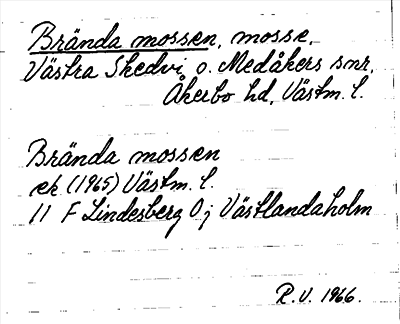 Brända mossen, mosse,
Västra Skedvi o. Medåkers snr,
Åkerbo hd, Västm. l.
Brända mossen
ek (1965) Västm. l.
11 F Lindesberg 0 j Västlandaholm
R.V. 1966.